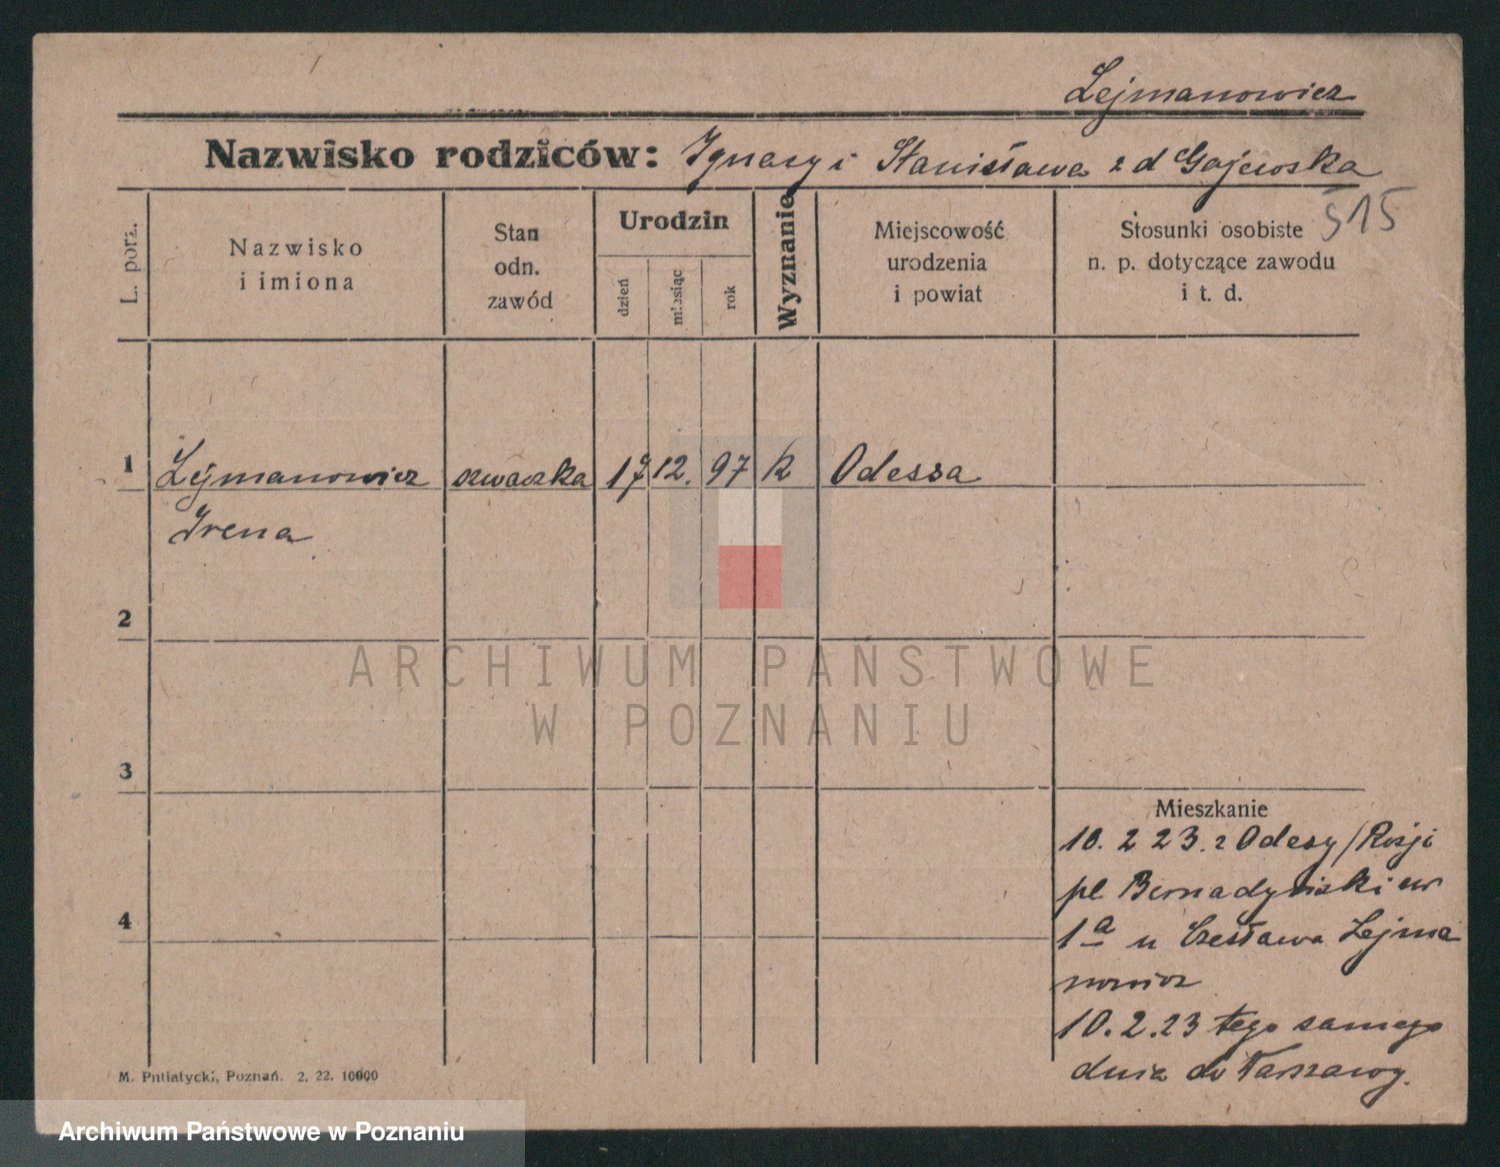 Lejmanowicz
Nazwisko rodziców: Ignacy i Stanisława z d Gajewska
515
L. porz.
Nazwisko
i imiona
Stan
odn.
zawód
Urodzin
dzień
miesiąc
rok
Wyznanie
Miejscowość
urodzenia
i powiat
Stosunki osobiste
n. p. dotyczące zawodu
i t. d.
1 Lejmanowicz szwaczka 17 12. 97 k Odessa
Irena
2
3
4
Mieszkanie
10. 2 23. z Odesy / Rosji
pl. Bernadyński
1a u Czesława Lejma
nowicz
10. 2. 23 tego samego
dnia do Warszawy.
M. Putiatycki, Poznań. 2. 22. 10000
ARCHIWUM PAŃSTWOWE
W POZNANIU
Archiwum Państwowe w Poznaniu